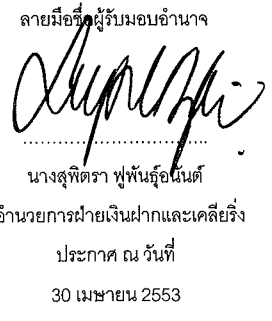 ลายมือชื่อผู้รับมอบอำนาจ
นางสุพิตรา ฟูพันธุ์อนันต์
อำนวยการฝ่ายเงินฝากและเคลียริ่ง
ประกาศ ณ วันที่
30 เมษายน 2553